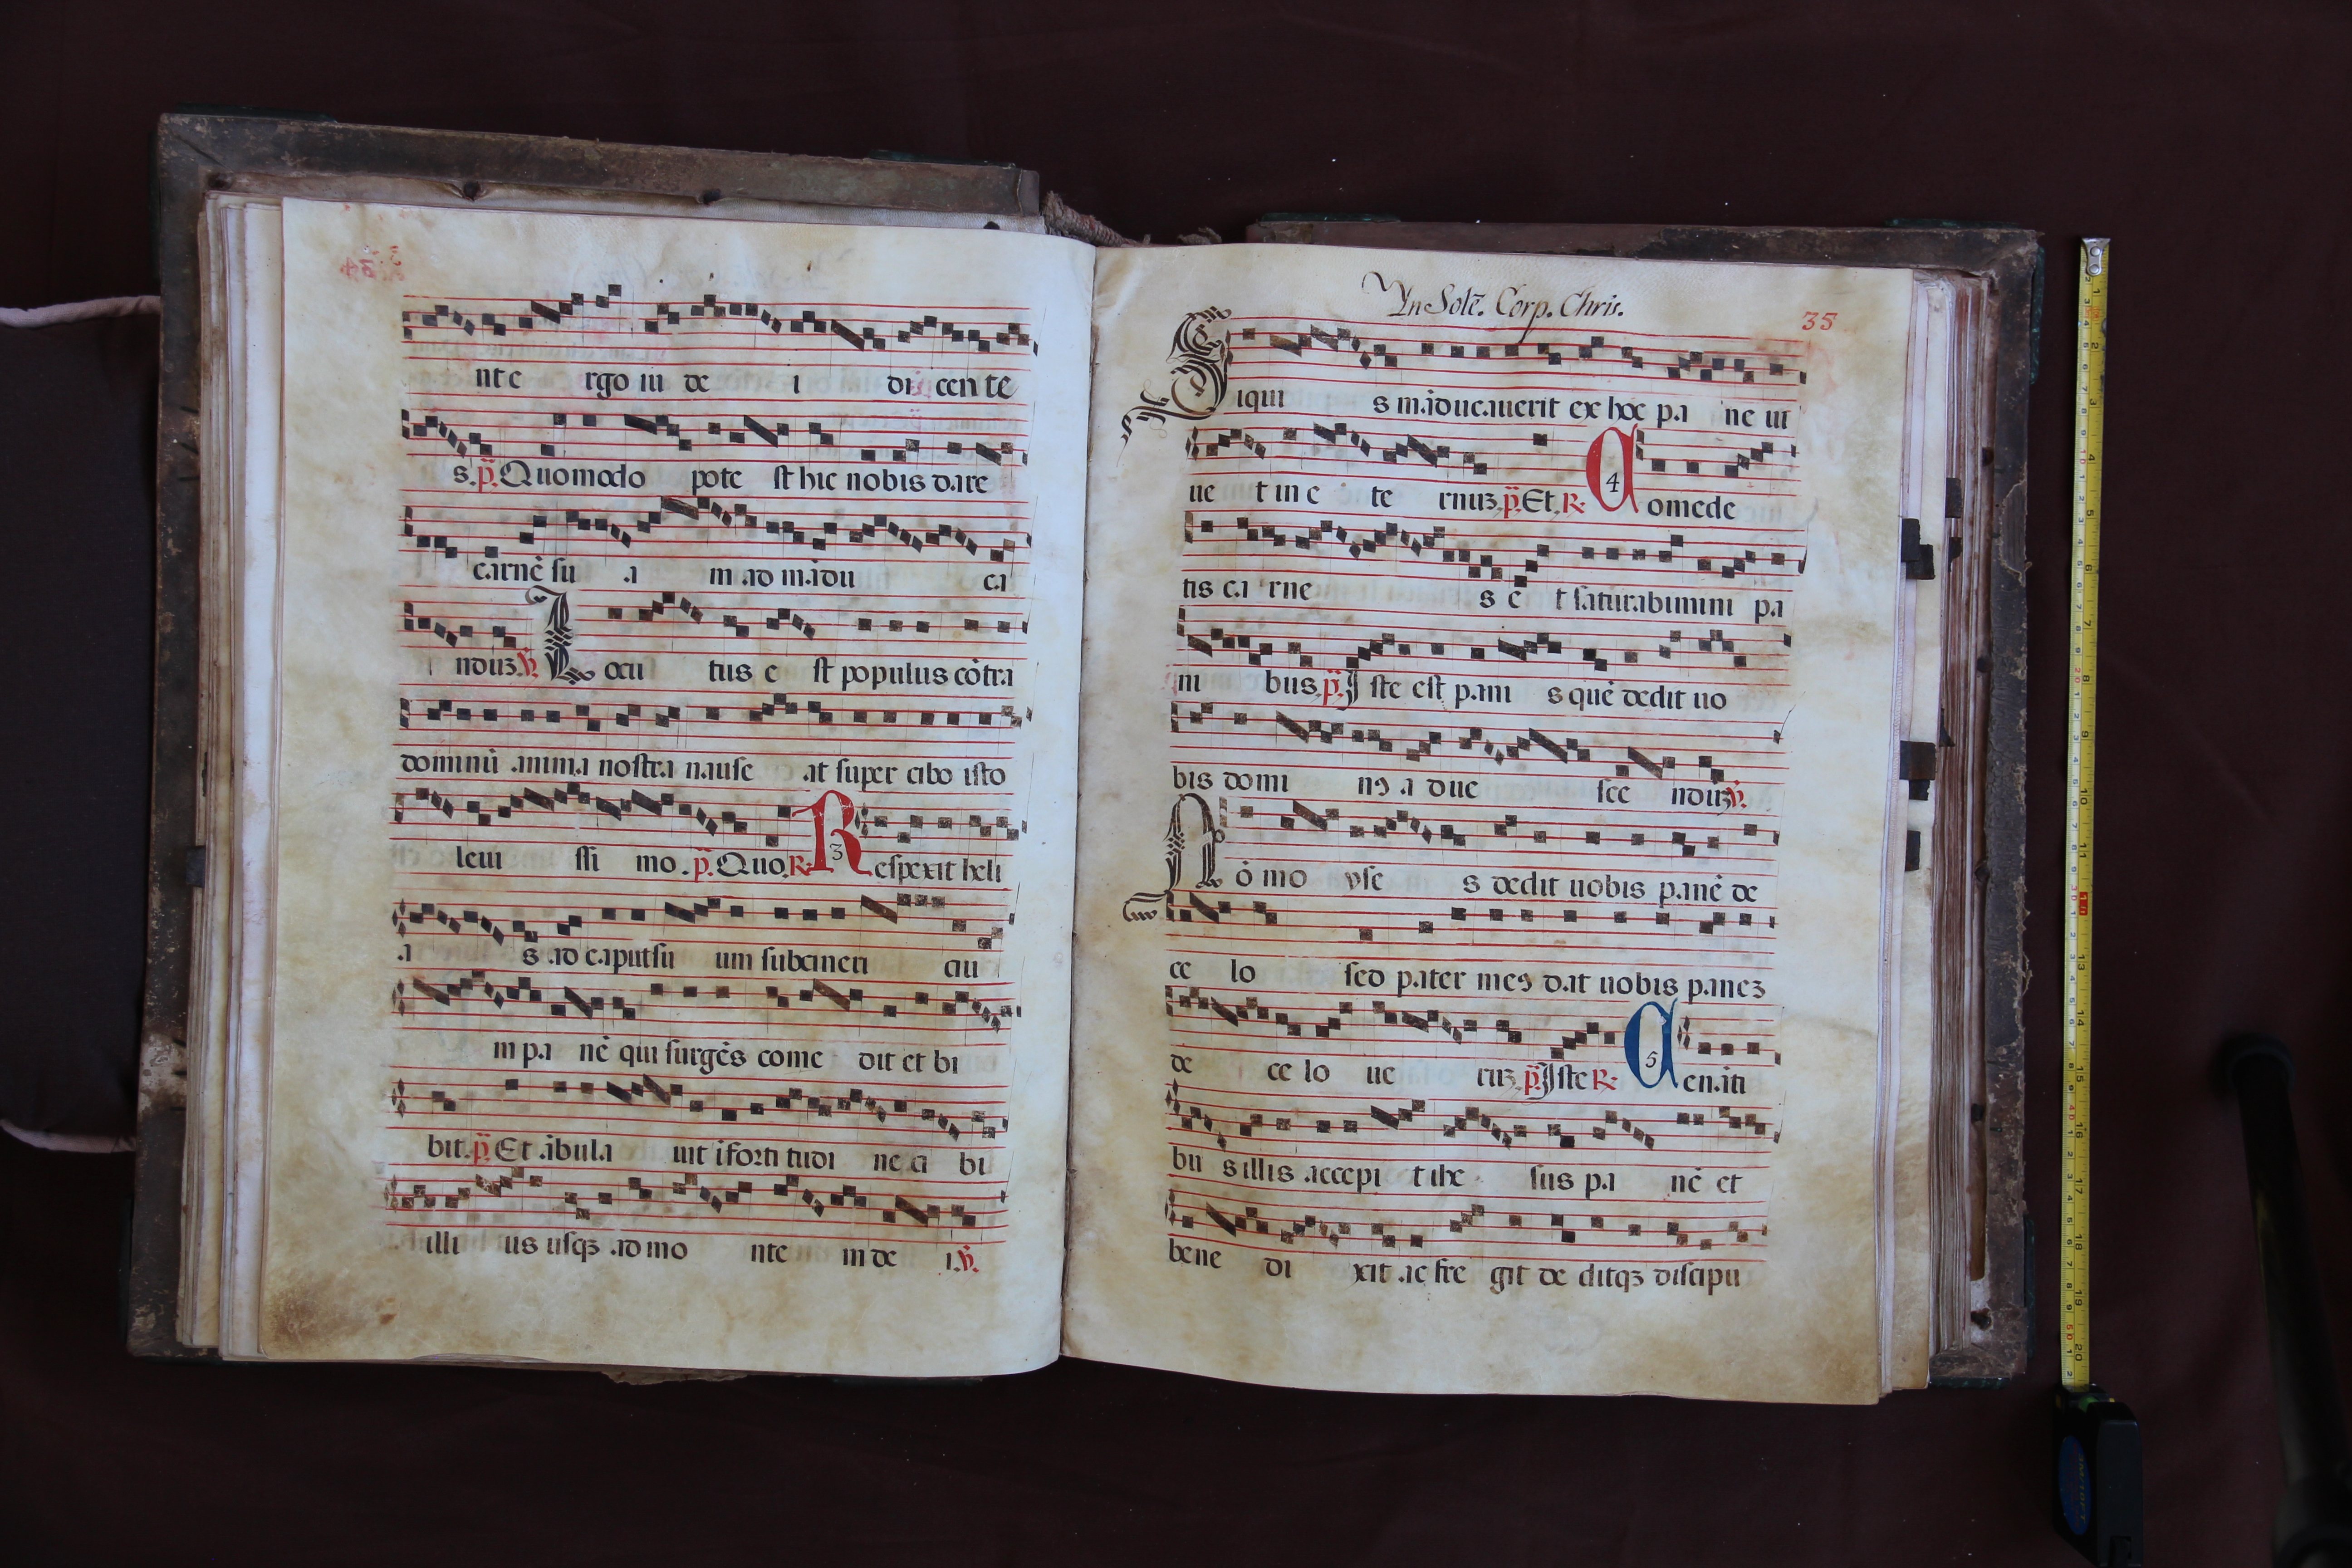 nt e rgo iu de i di cen te
s. p. Quomodo pote st hic nobis dare
carnē su a m ad mādu ca
nduz. ℣. Locu tus e st populus cōtra
dominū anima nostra nause at super cibo isto
leui ssi mo. p. Quo. R. 3 Respexit heli
a s ad caput su um subcineri ciu
m pa nē qui surgēs come dit et bi
bit. p. Et ābula uit ī forti tudi ne ci bi
illi us usqꝫ ad mo nte m de i. ℣.
In Solē. Corp. Chris.
35
Siqui s māducauerit ex hoc pa ne ui
ue t in e te rnuz. p. Et. R. 4 Comede
tis ca rne s e t saturabimini pa
ni bus. p. Iste est pani s quē dedit uo
bis domi nꝰ a d ue sce nduz. ℣.
Nō mo yse s dedit uobis panē de
ce lo sed pater meꝰ dat uobis panez
de ce lo ue ruz. p. Iste R. 5 Cenāti
bu s illis accepi t ihe sus pa nē et
bene di xit ac fre git de ditqꝫ discipu